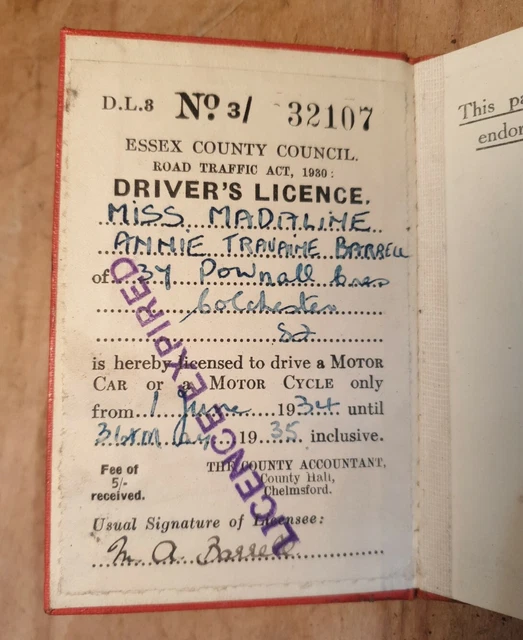 D.L.8 No. 3/ 32107
ESSEX COUNTY COUNCIL.
ROAD TRAFFIC ACT, 1930:
DRIVER'S LICENCE.
MISS. MADALINE
ANNIE TRAVAINE BARRELL
of 37 Pownall Cres
Colchester
is hereby licensed to drive a MOTOR
CAR or a MOTOR CYCLE only
from 1 June 1934 until
31st May 1935 inclusive.
Fee of
5/-
received.
THE COUNTY ACCOUNTANT,
County Hall,
Chelmsford.
Usual Signature of Licensee:
M. A. Barrell
LICENCE EXPIRED
This
endor